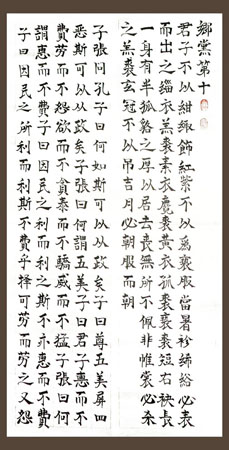 鄉黨第十
君子不以紺緅飾紅紫不以為褻服當暑袗絺綌必表
而出之緇衣羔裘素衣麑裘黃衣狐裘褻裘短右袂長
一身有半狐貉之厚以居去喪無所不佩非帷裳必杀
之羔裘玄冠不以吊吉月必朝服而朝
子張問孔子曰何如斯可以從政矣子曰尊五美屏四
惡斯可以從政矣子張曰何謂五美子曰君子惠而不
費勞而不怨欲而不貪泰而不驕威而不猛子張曰何
謂惠而不費子曰因民之利而利之斯不亦惠而不費
子曰因民之所利而利斯不費乎擇可勞而勞之又怨